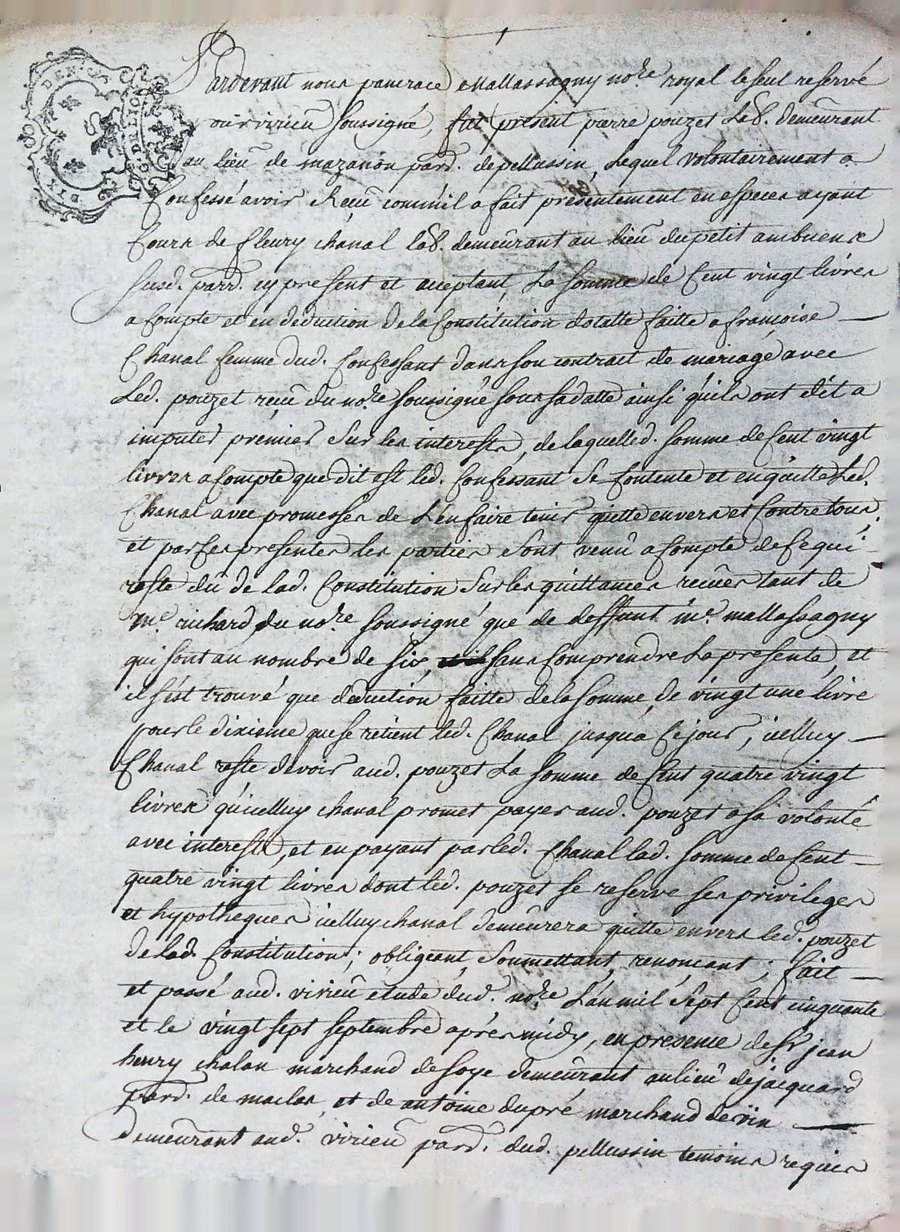 Pardevant nous pancrace Mallassagny no.re royal le seul reservé
pour virieu soussigné, fut présent pierre pouzet Lab. demeurant
au lieu de mazanon parr. de pellussin, Lequel volontairement a
Confessé avoir Recu comm'il a fait présentement en especes ayant
Cours de fleury chanal lab. demeurant au lieu du petit ambuent
susd. parr. cy present et acceptant, La somme de Cent vingt livres
a compte et en deduction de la Constitution dotalle faitte a françoise
Chanal femme dud. Confessant dans son contrat de mariage avec
Led. pouzet recu du no.re soussigné sous sa datte ainsi qu'ils ont dit a
imputer premier sur les interests, de laquelle d. somme de Cent vingt
livres a compte que dit est led. Confessant se Contente et en quitte Led.
Chanal avec promesses de L'en faire tenir quitte envers et Contre tous,
et par ses presentes les parties sont venu a Compte de ce qui
reste dû de lad. Constitution sur les quittances recues tant de
m.e richard du no.re soussigné que de deffunt m.e mallassagny
qui sont au nombre de six, sans comprendre La presente, et
il s'est trouvé que deduction faitte de la somme de vingt une livre
pour le dixieme que se retient led. Chanal jusqu'a Ce jour, icelluy
Chanal reste devoir aud. pouzet La somme de Cent quatre vingt
livres qu'icelluy chanal promet payer aud. pouzet a sa volonté
avec interests, et en payant par led. Chanal lad. somme de Cent
quatre vingt livres dont led. pouzet se reserve ses privileges
et hypotheques icelluy chanal demeurera quitte envers led. pouzet
de lad. Constitution; obligeant, soumettant, renonçant; fait
et passé aud. virieu etude dud. no.re L'an mil sept Cent cinquante
et le vingt sept septembre après midy, en presence de Sr jean
henry chalan marchand de soye demeurant au lieu de jacquard
parr. de maclas, et de antoine dupré marchand de vin
demeurant aud. virieu parr. dud. pellussin temoins requis